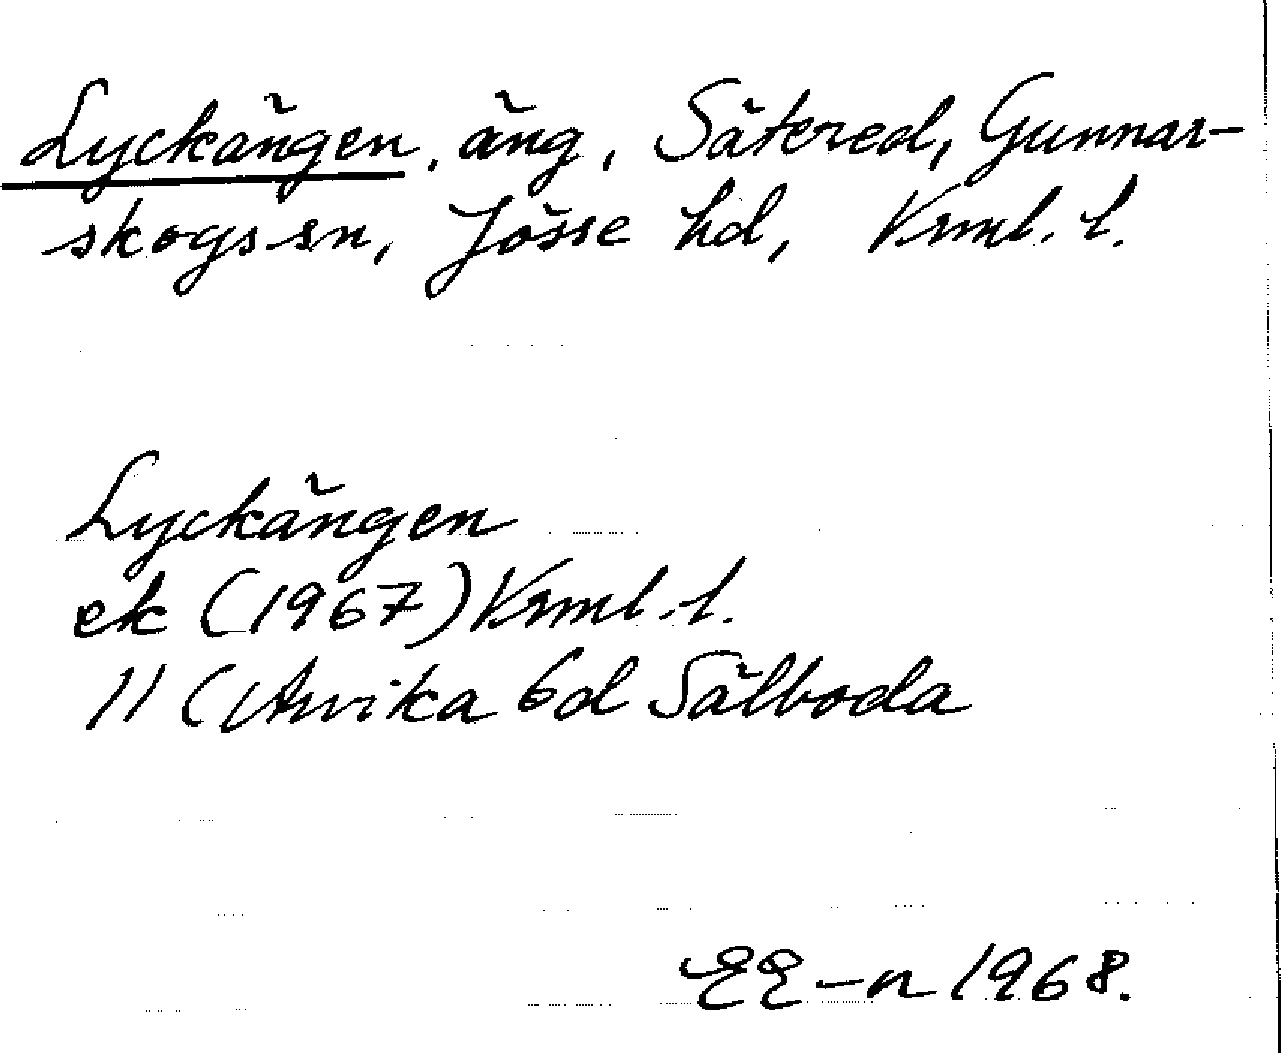 Lyckängen, äng, Sätered, Gunnar-
skogs sn, Jösse hd, Vrml. l.
Lyckängen
ek (1967) Vrml. l.
11 C Arvika 6d Sälboda
EE-n 1968.